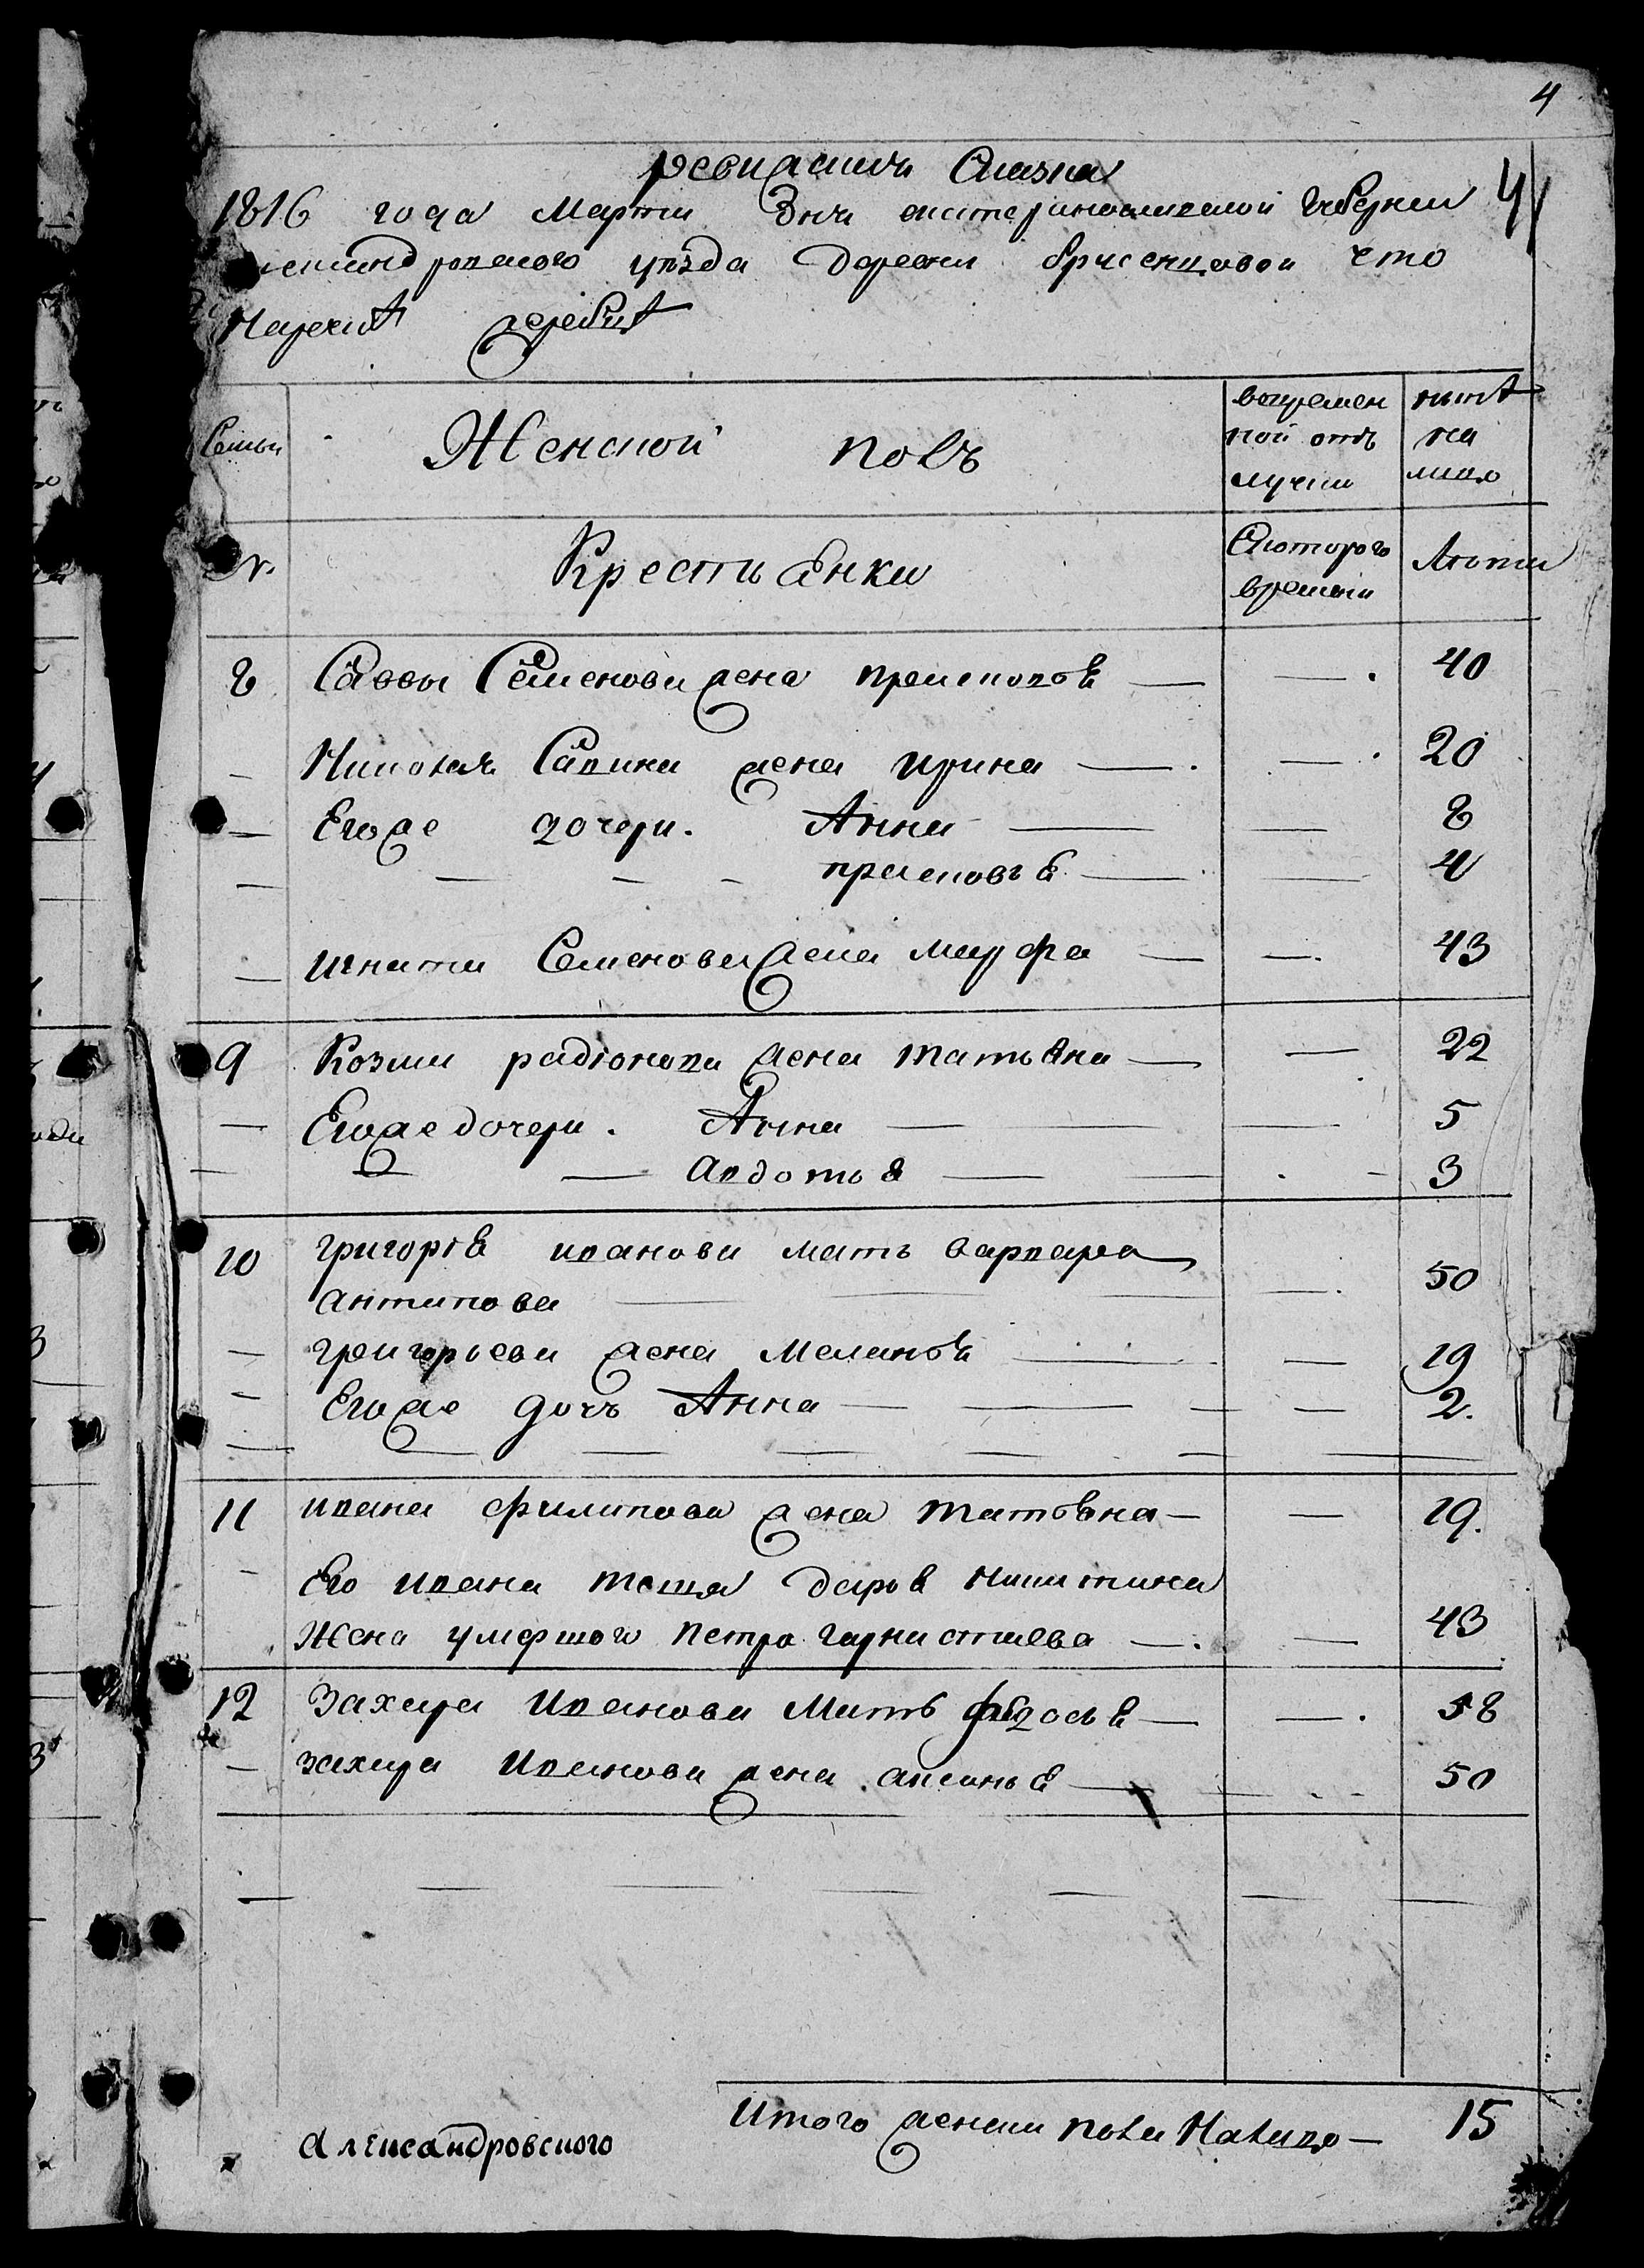 4
ревиская Сказка
1816 года Марта Зня екатеринославской губернии 4
александровского уезда деревни что
жеребит
Семьи
Женской полъ
вовремен
ной отъ
лучки
ныне
на
лицо
№
Крестьянки
Скоторого
времени
Лета
8 Саввы Семенова жена прасковя — — 40
— Николая Савина жена ирина — — 20
— Егоже дочери. Анна — — 8
— — — — прасковья — — 4
— игната Семенова жена марфа — — 43
9 Козми радіонова жена татьяна — — 22
— Егоже дочери. Анна — — 5
— — — авдотья — — 3
10 григорія иванова мать варвара
антипова — — 50
— григорьева жена меланя — — 19
— Егоже дочь Анна — — 2.
11 ивана филипова жена татьяна — — 19.
— Его ивана теща дарья никитина
жена умершого петра — — 43
12 Захара Иванова Мать федосья — — 58
— захара Иванова жена аксинья — — 50
Итого женска пола Налицо — 15
александровского